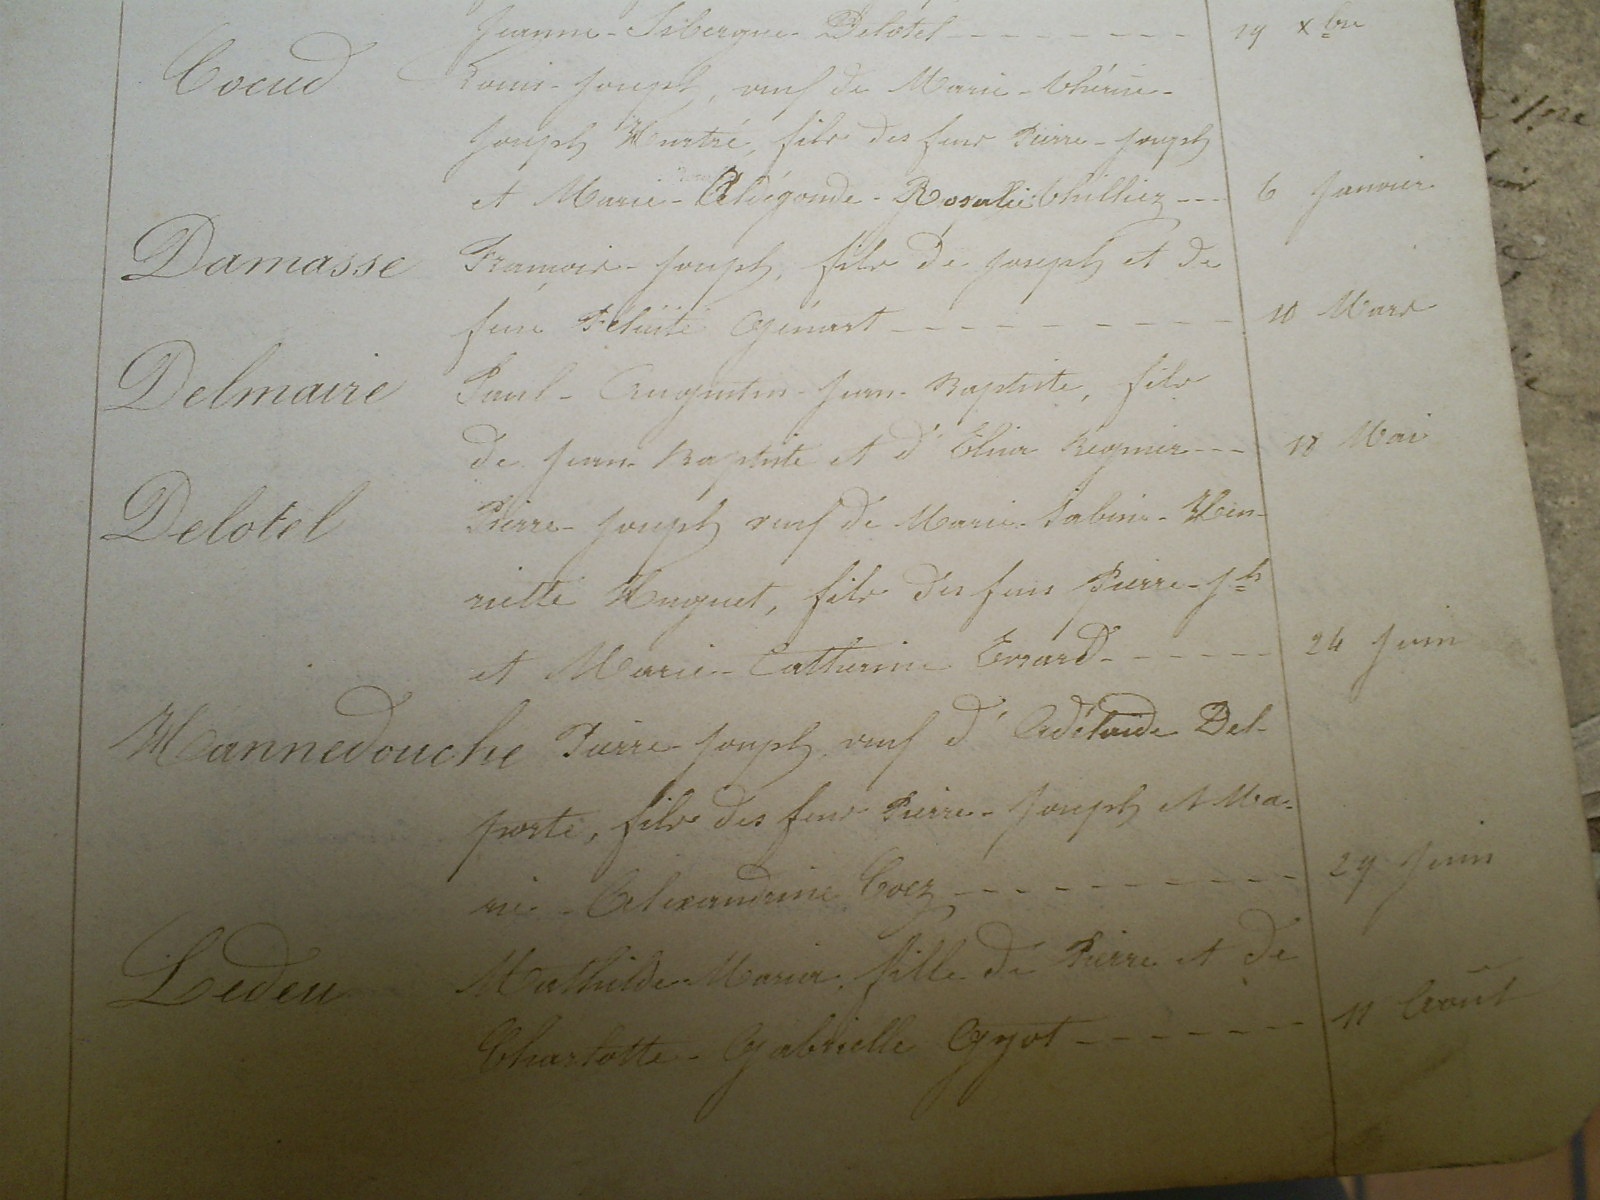 Jeanne-Isbergue-Delotel - - - - - - - - 19 xbre
Coeud Louis-Joseph, veuf de Marie-Thérèse-
Joseph Heurtré, fils des feus Pierre-Joseph
et Marie-Aldégonde-Rosalie Thilliez - - - 6 Janvier
Damasse François-Joseph, fils de Joseph et de
feue Félicité Génart - - - - - - - - - 10 Mars
Delmaire Paul-Augustin-Jean-Baptiste, fils
de Jean-Baptiste et d'Elisa Régnier - - - 18 Mai
Delotel Pierre-Joseph veuf de Marie-Sabine-Hen-
riette Huguet, fils des feus Pierre-Jph
et Marie-Catherine Evrard - - - - - - 24 Juin
Hannedouche Pierre-Joseph, veuf d'Adélaïde Del-
porte, fils des feus Pierre-Joseph et Ma-
rie-Alexandrine Coez - - - - - - - - - 29 Juin
Ledeu Mathilde-Maria, fille de Pierre et de
Charlotte-Gabrielle Gyot - - - - - - 11 Août